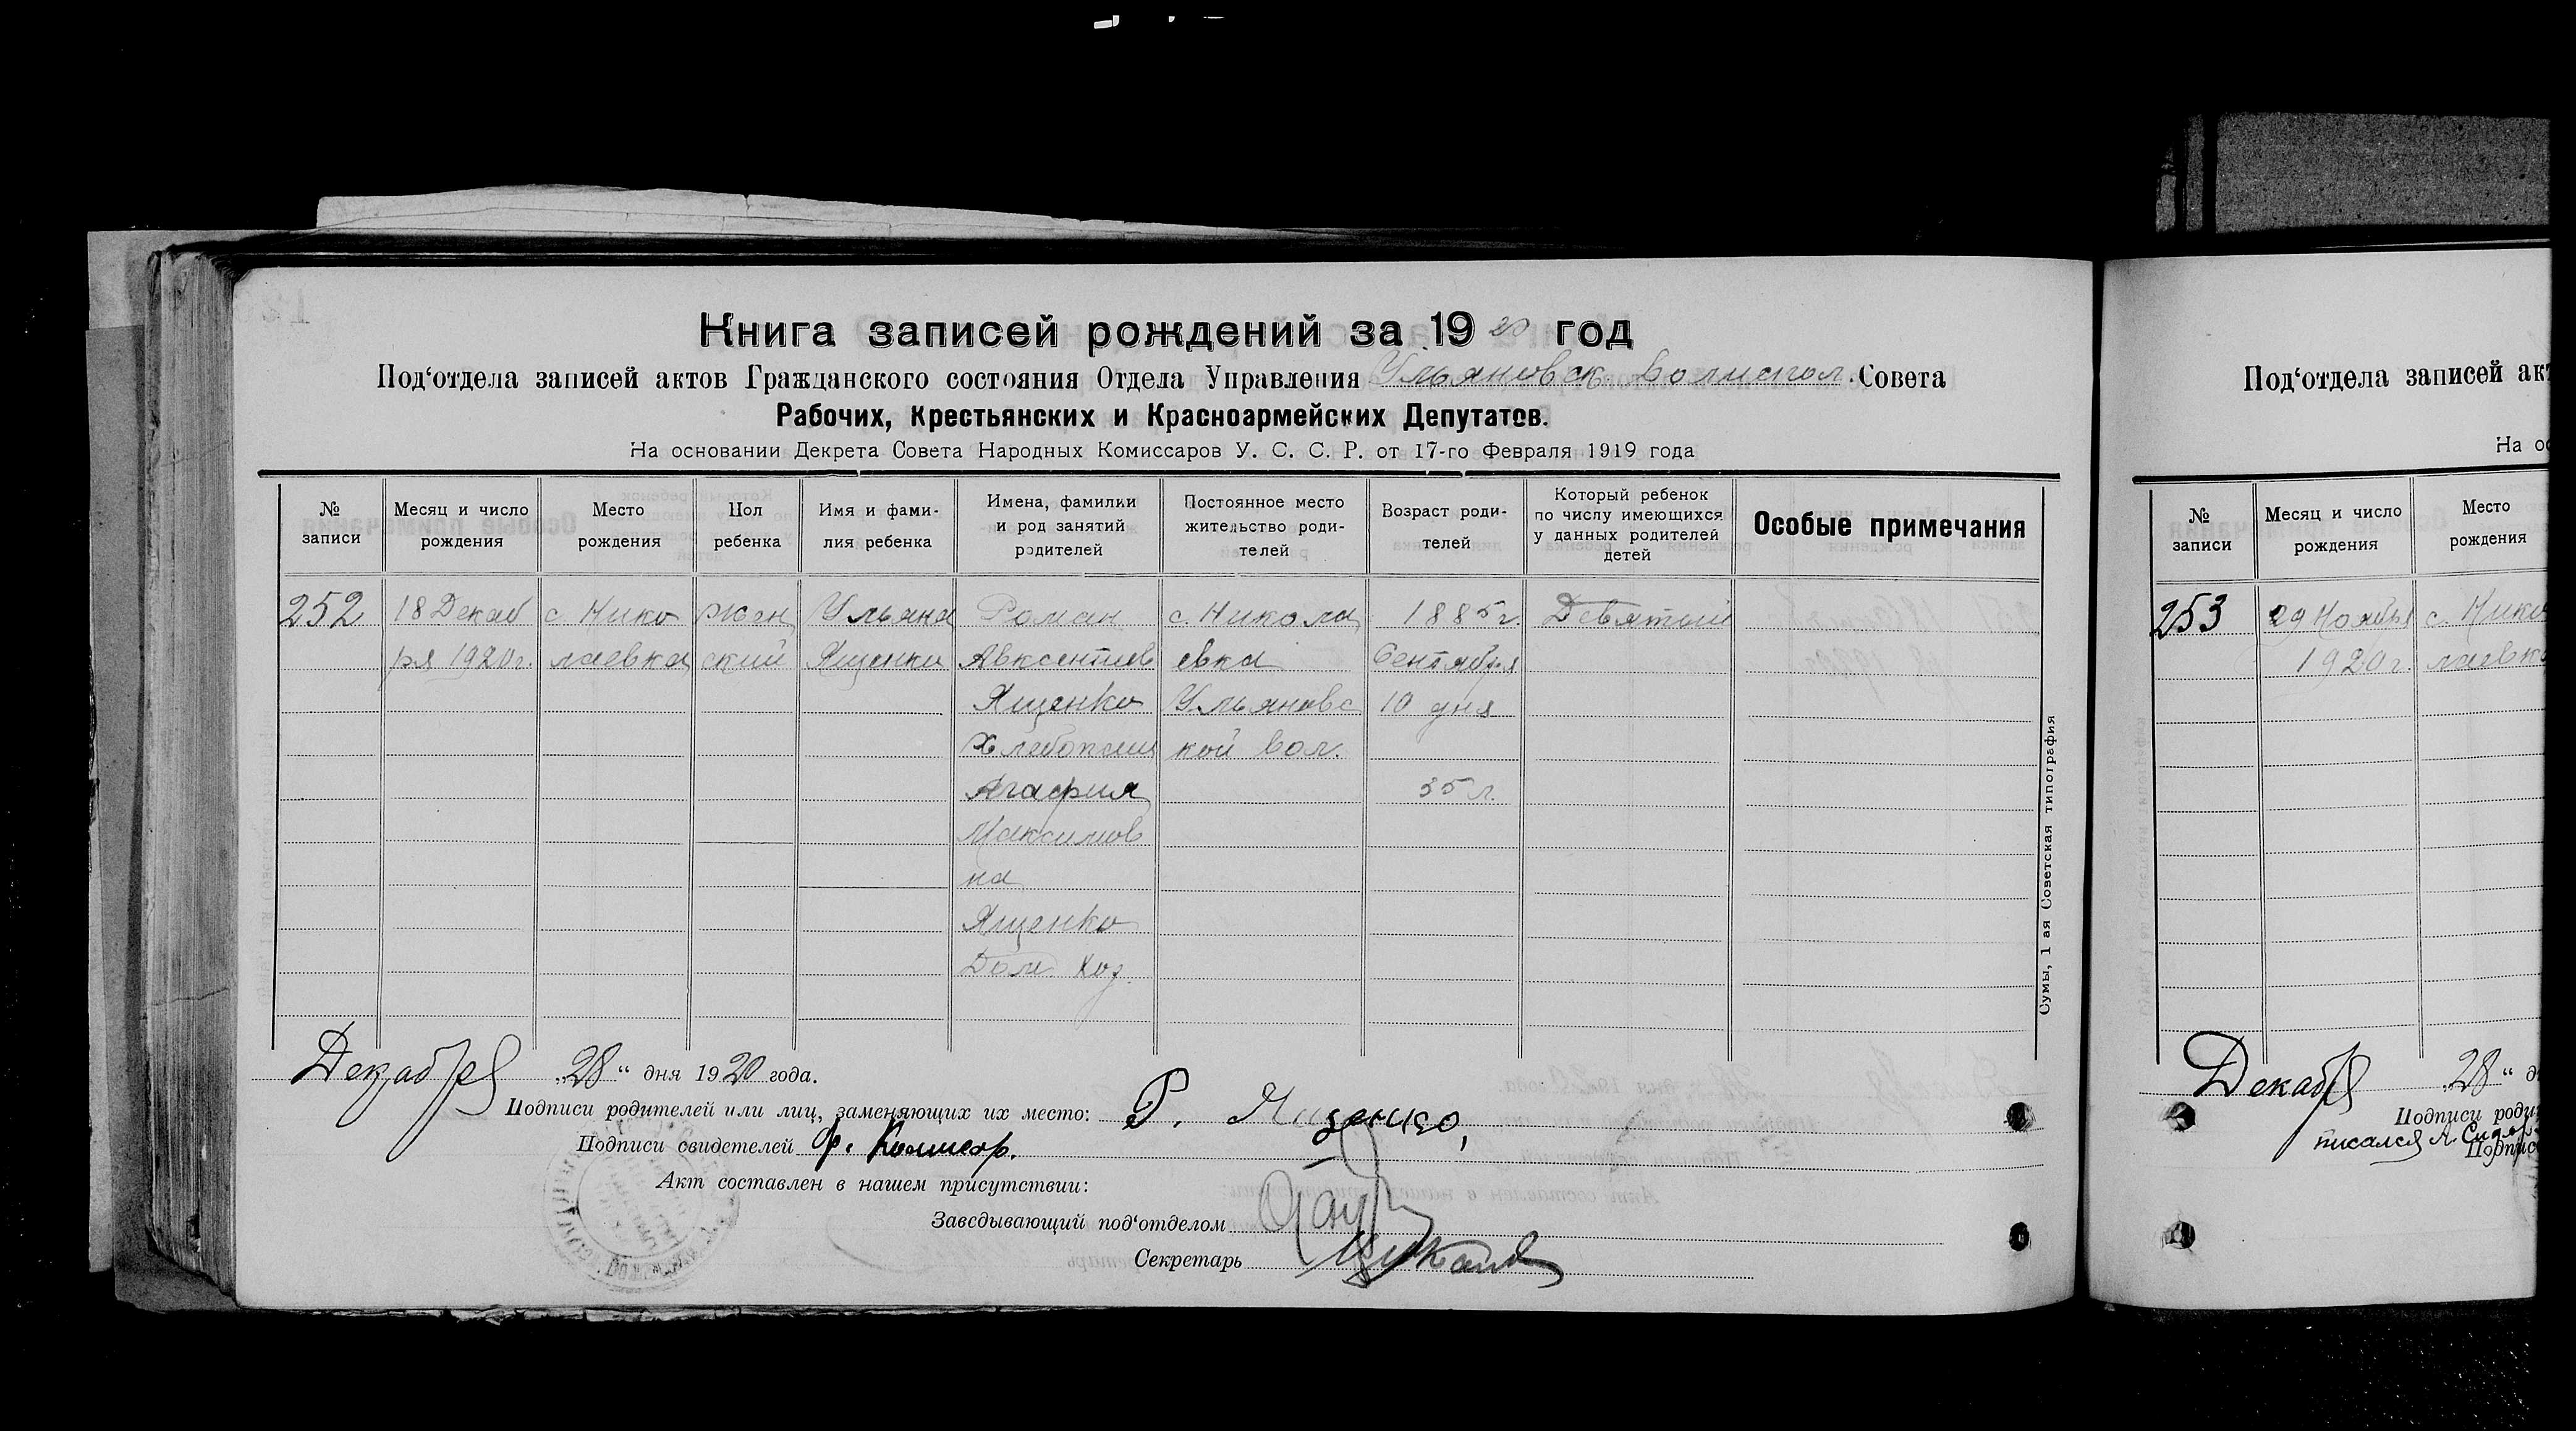 Книга записей рождений за 1920 год
Под‘отдела записей актов Гражданского состояния Отдела Управления Ульяновск. волиспол. Совета
Рабочих, Крестьянских и Красноармейских Депутатов.
На основании Декрета Совета Народных Комиссаров У. С. С. Р. от 17-го Февраля 1919 года
№ записи
Месяц и число рождения
Место рождения
Пол ребенка
Имя и фами-
лия ребенка
Имена, фамилии
и род занятий
родителей
Постоянное место
жительство роди-
телей
Возраст роди-
телей
Который ребенок
по числу имеющихся
у данных родителей
детей
Особые примечания
252 18 Декаб с. Нико жен Ульяна Роман с. Никола 1885 г. Девятый
ря 1920 г. лаевка ский Ященко Авксентиев евка Сентября
Ященко Ульяновс 10 дня
Хлебопаш кой вол.
Агафия 35 л.
Максимов
на
Ященко
Дом. Хоз.
Декабря 28 “ дня 1920 года.
Подписи родителей или лиц, заменяющих их место: Р. Ященко,
Подписи свидетелей
Акт составлен в нашем присутствии:
Заведывающий под‘отделом
Секретарь
Сумы, 1 ая Советская типография
Под‘отдела записей акт
На ос
№ записи
Месяц и число рождения
Место рождения
253 29 Ноября с. Нико
1920 г. лаевка
Декабря 28 “ д
Подписи роди
писался А.
Подпис